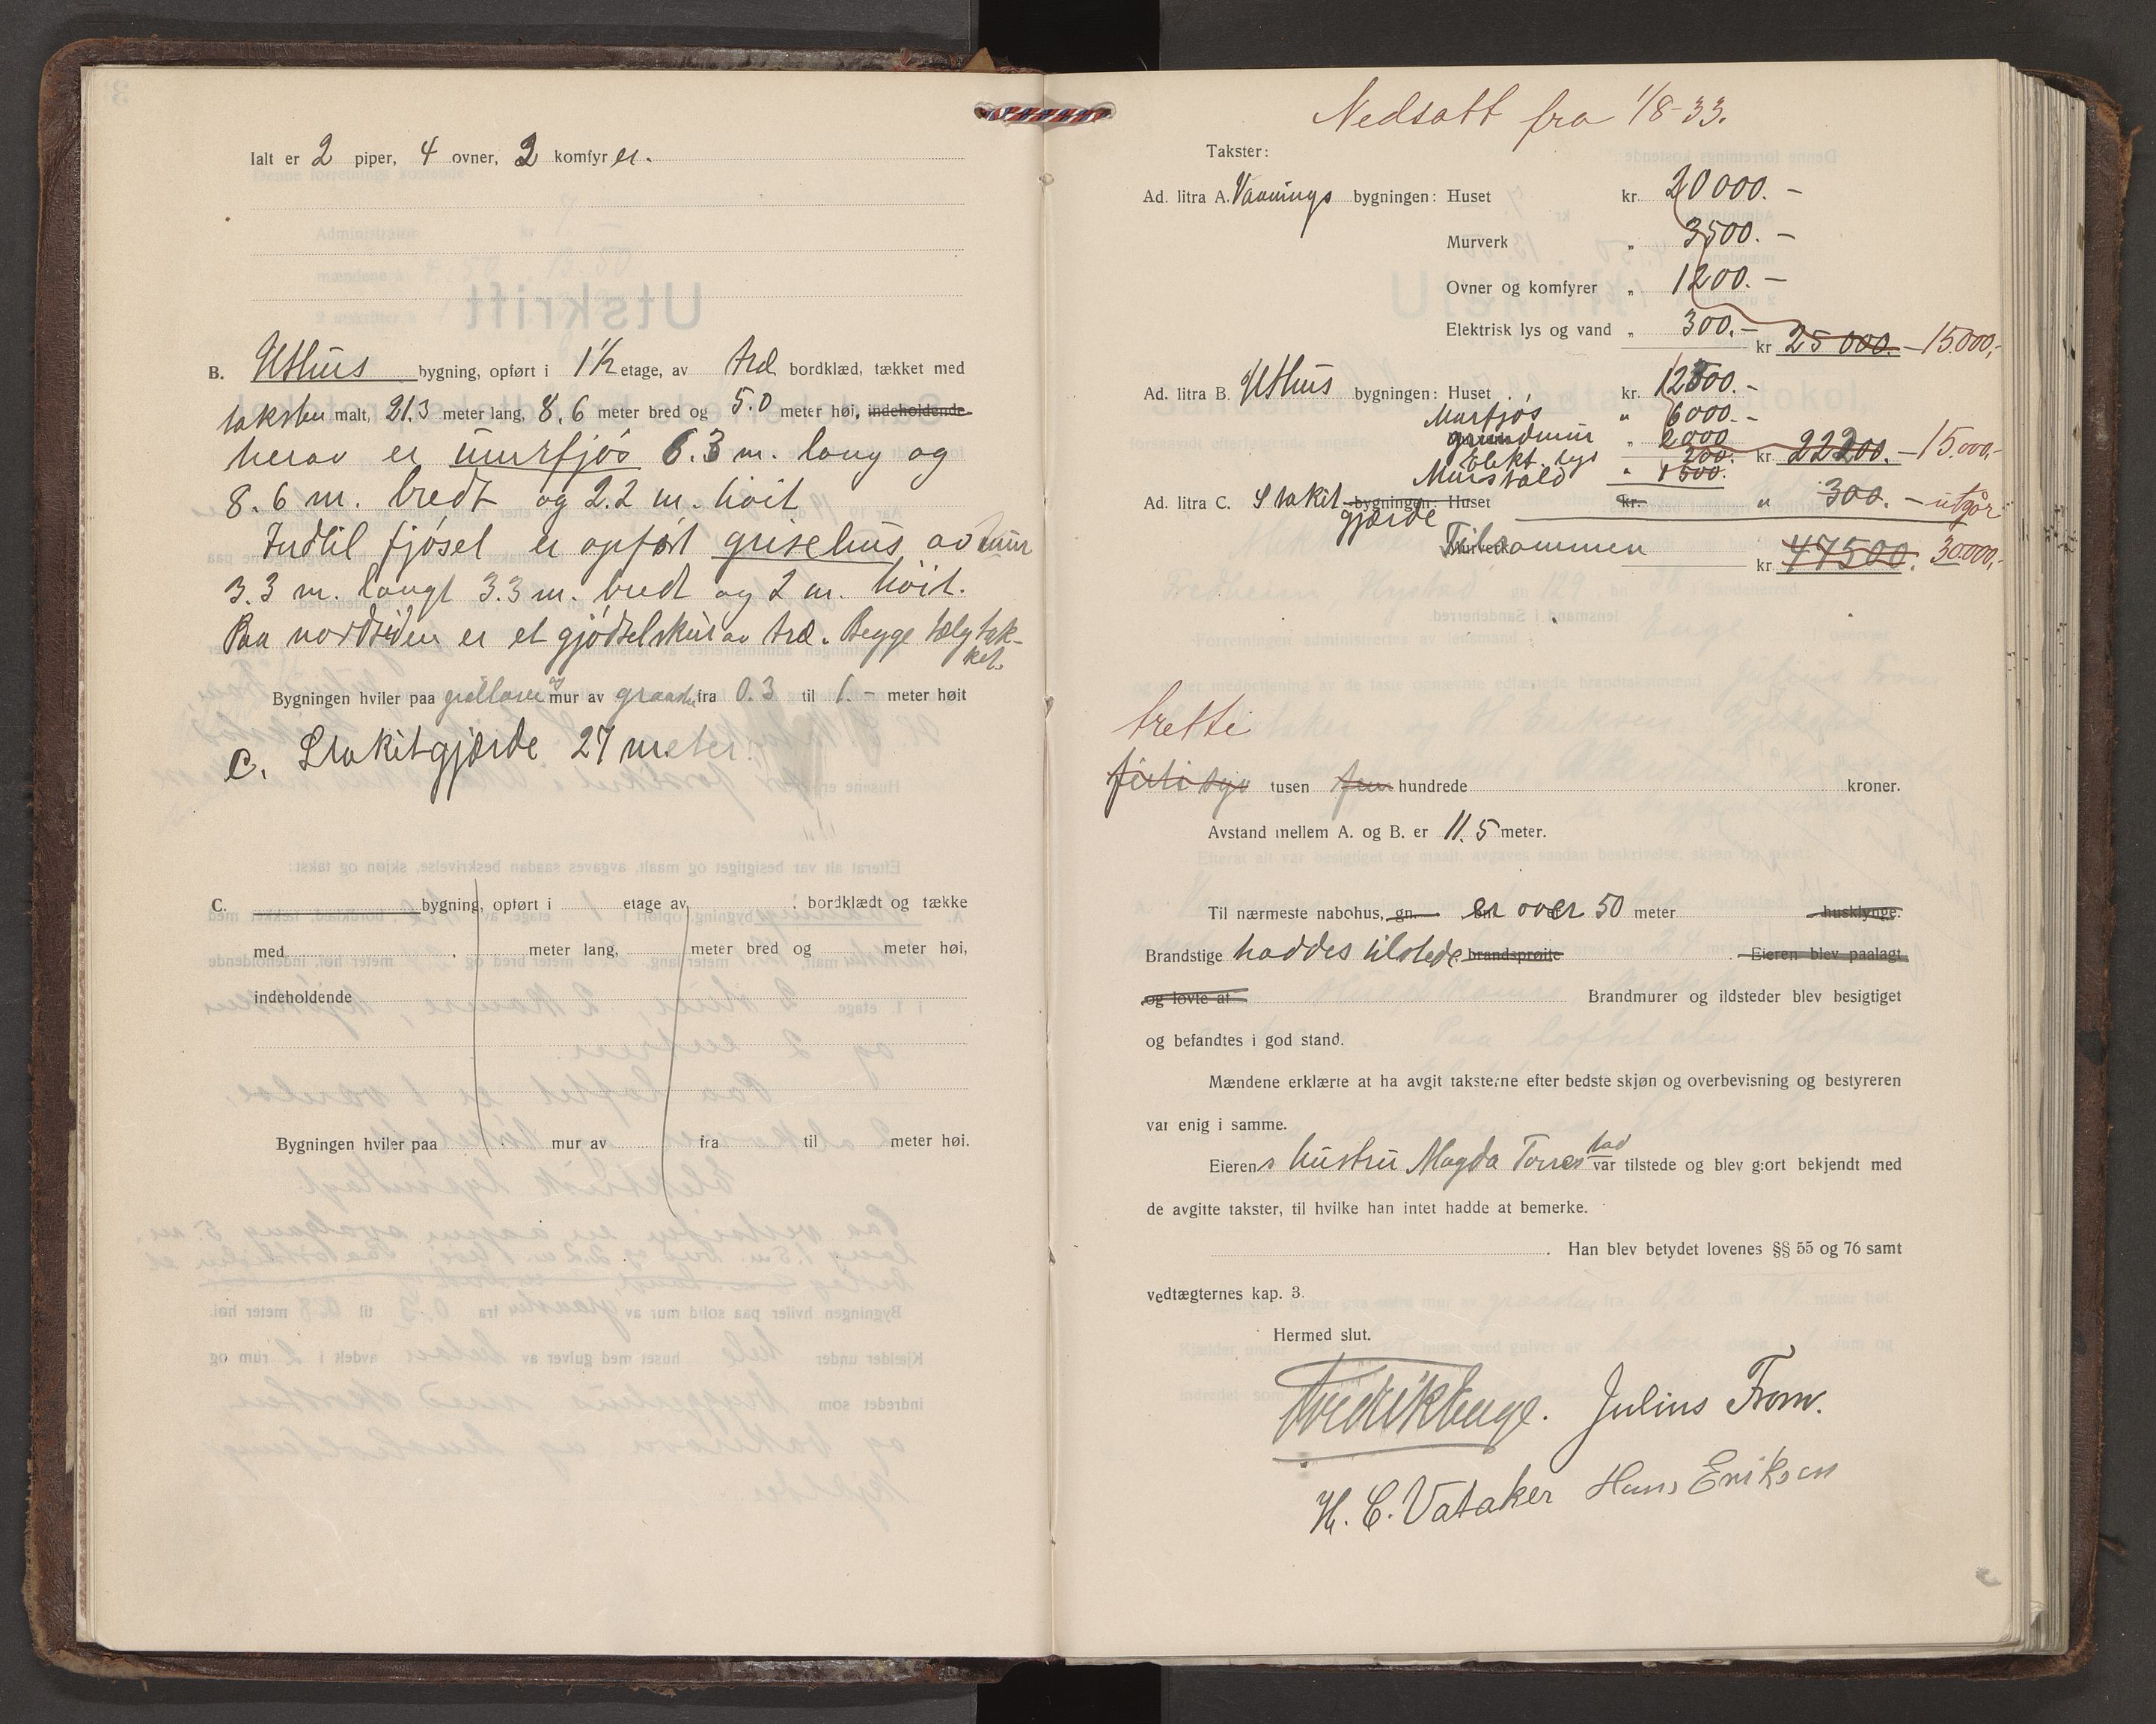 Ialt er 2 piper, 4 ovner, 2 komfyrer.
B. Uthus bygning, opført i 1½ etage, av træ bordklæd, tækket med
taksten malt, 21.3 meter lang, 8.6 meter bred og 5.0 meter høi, indeholdende
herav er murfjøs 6.3 m. lang og
8.6 m. bredt og 2.2 m. høit
Indtil fjøset er opført grisehus av mur
3.3 m. langt 3.3 m. bredt og 2 m. høit.
Paa nordsiden er et gjødselskur av træ. Begge tælgtak-
ket.
Bygningen hviler paa og mur av graasten fra 0.3 til 1.- meter høit
C. Stakitgjærde 27 meter.
C. bygning, opført i etage av bordklædt og tække
med meter lang, meter bred og meter høi,
indeholdende
Bygningen hviler paa mur av fra til meter høi.
Nedsatt fra 1/8-33.
Takster:
Ad. litra A. Vaanings bygningen: Huset kr. 20000.-
Murverk „ 3500.-
Ovner og komfyrer „ 1200.-
Elektrisk lys og vand „ 300.-
kr 25000.- 15.000,-
Ad. litra B. Uthus bygningen: Huset kr. 12500.-
Murfjøs " 6000.-
grundmur „ 2000
Elekt. lys 200. kr. 22200.- 15.000,-
Murstald " 1500.
Ad. litra C. Stakit bygningen: Huset kr. " 300.- utgår
gjærde
Murverk Tilsammen
kr 47500. 30.000,-
tretti
førti syv tusen fem hundrede kroner.
Avstand mellem A. og B. er 11.5 meter.
Til nærmeste nabohus, gn. bn. er over 50 meter husklynge.
Brandstige haddes tilstede, brandsprøite . Eieren blev paalagt
og lovte at Brandmurer og ildsteder blev besigtiget
og befandtes i god stand.
Mændene erklærte at ha avgit taksterne efter bedste skjøn og overbevisning og bestyreren
var enig i samme.
Eierens hustru Magda Torrestad var tilstede og blev gjort bekjendt med
de avgitte takster, til hvilke han intet hadde at bemerke.
. Han blev betydet lovenes §§ 55 og 76 samt
vedtægternes kap. 3.
Hermed slut.
Fredrik Enge. Julius From.
H. C. Vataker Hans Eriksen